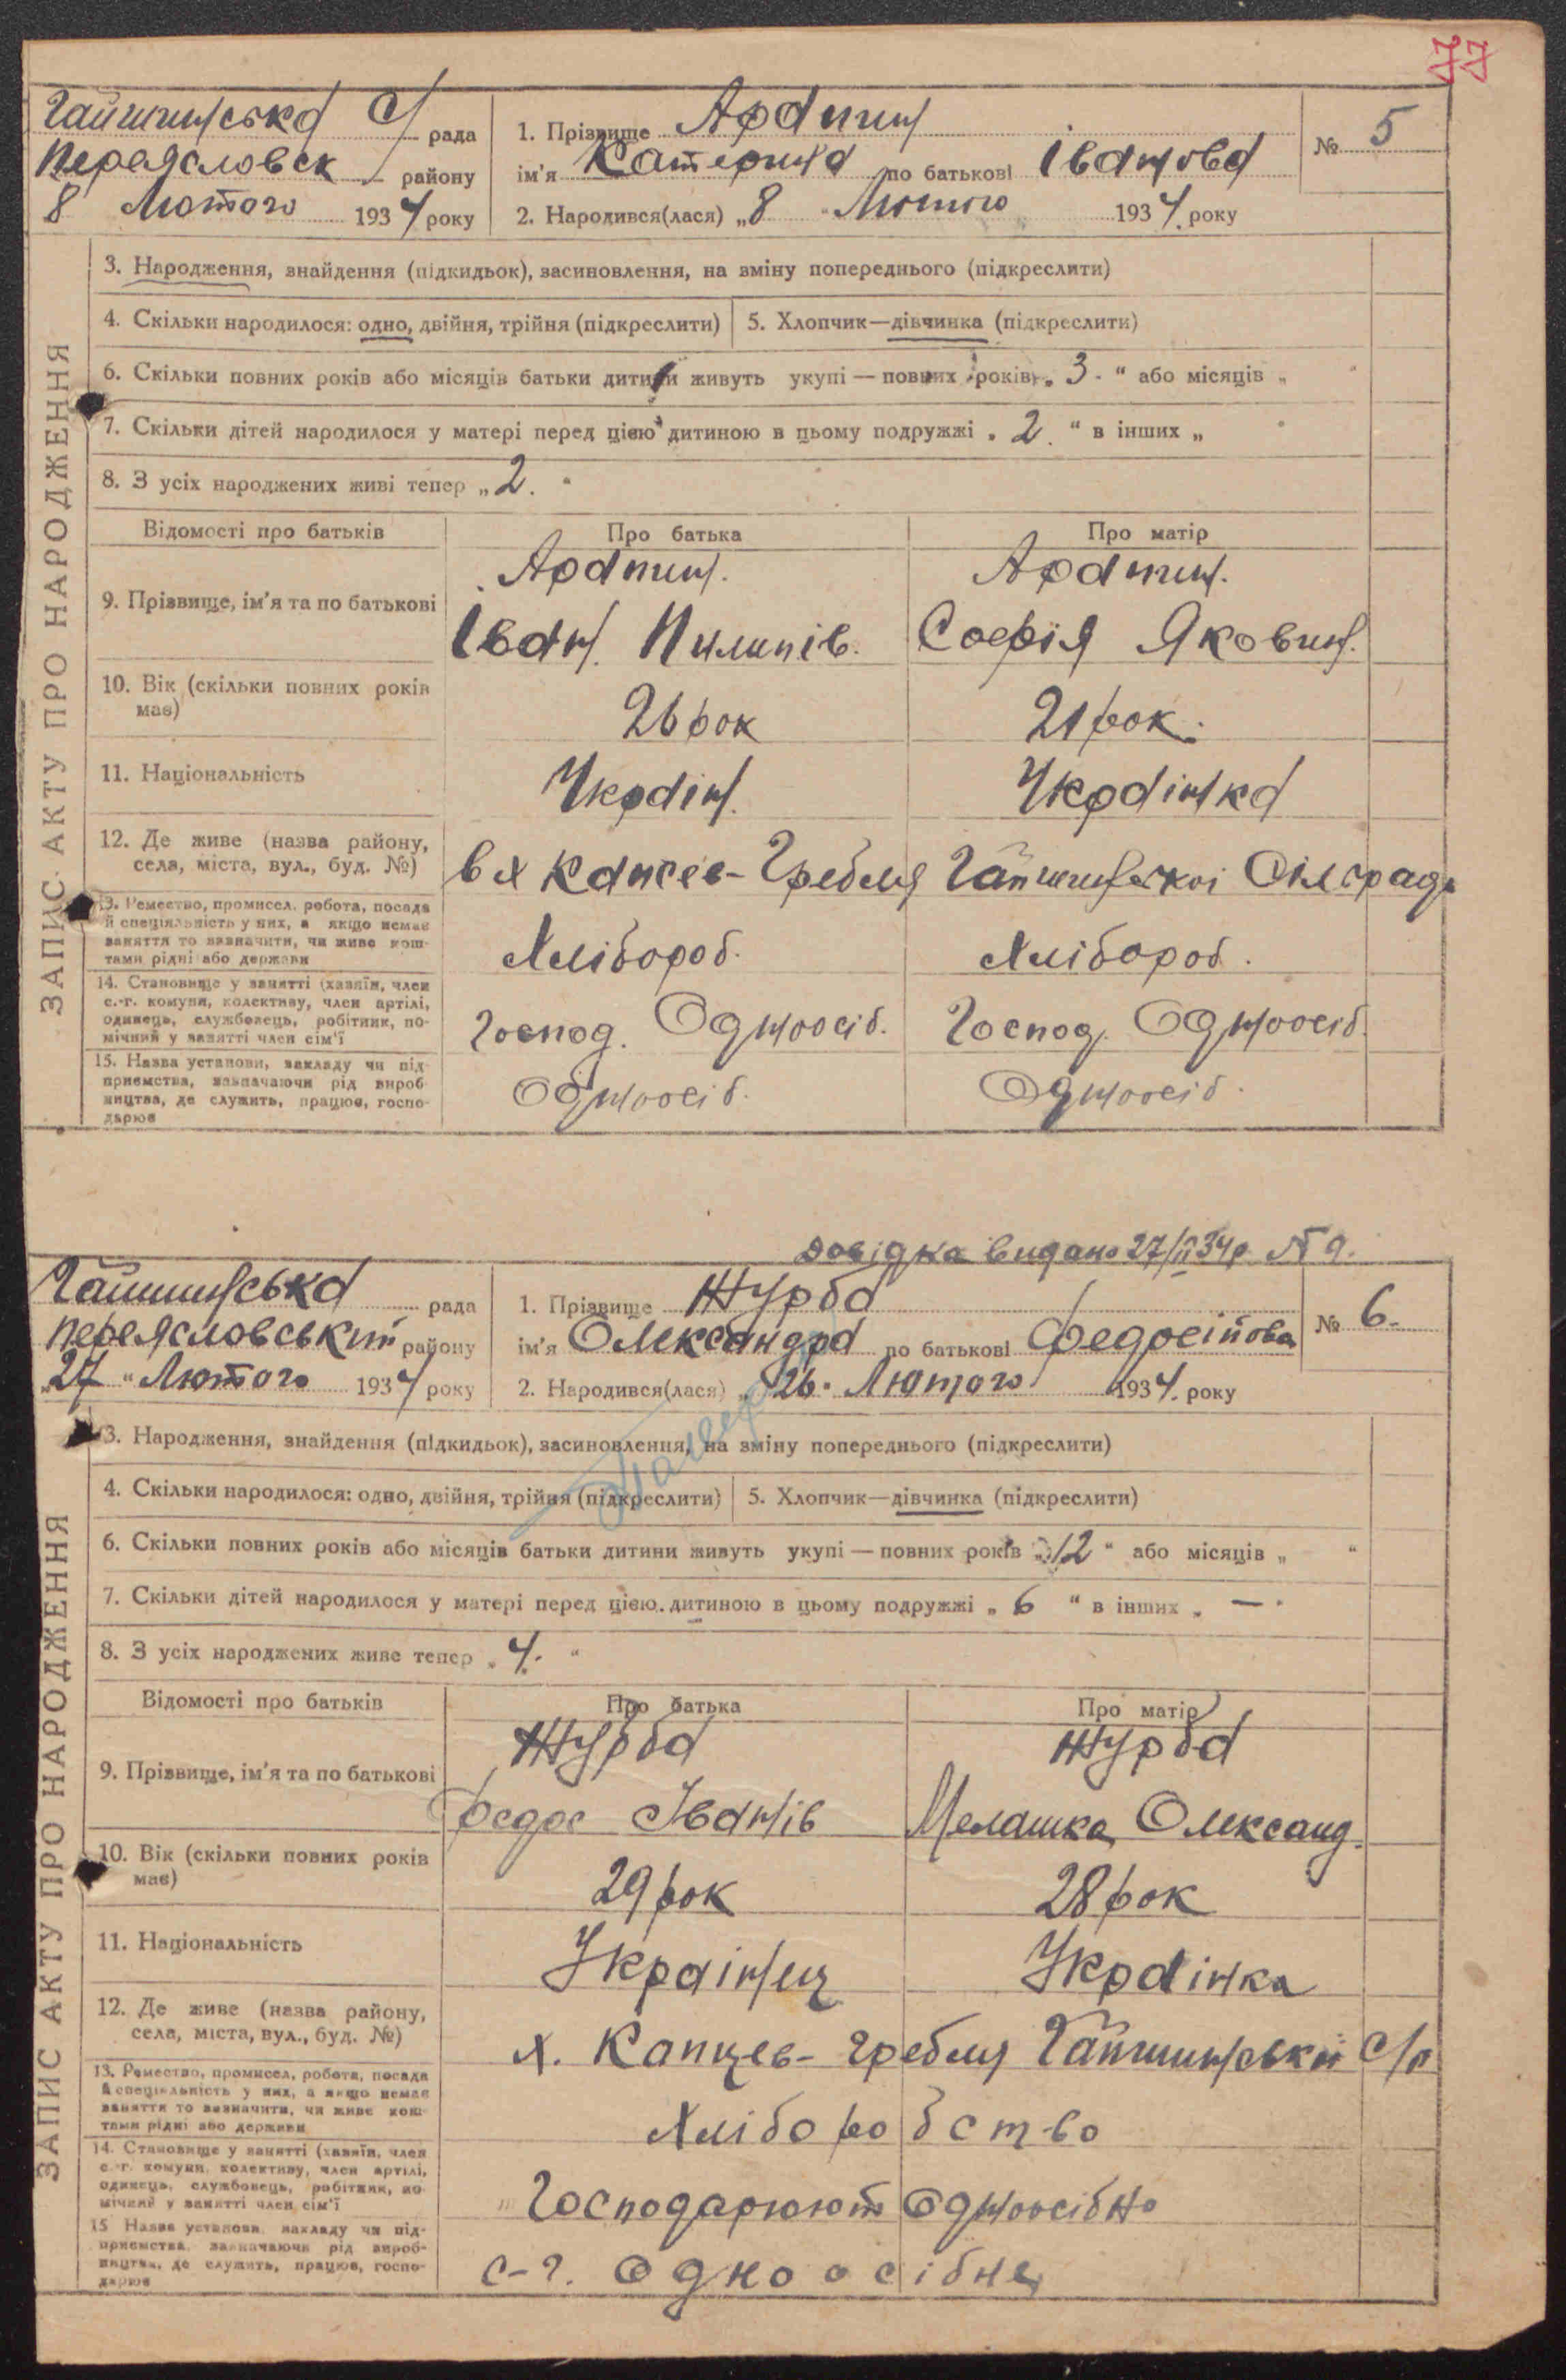 77
Гайшинська С/ рада
Переясловск району
8 Лютого 1934 року
1. Прізвище Арапин
ім'я Катерина по батькові Іванова
2. Народився(лася) „8 " Лютого 1934. року
№ 5
ЗАПИС АКТУ ПРО НАРОДЖЕННЯ
3. Народження, знайдення (підкидьок), засиновлення, на зміну попереднього (підкреслити)
4. Скільки народилося: одно, двійня, трійня (підкреслити)
5. Хлопчик—дівчинка (підкреслити)
6. Скільки повних років або місяців батьки дитини живуть укупі — повних років „ 3 - " або місяців „ "
7. Скільки дітей народилося у матері перед цією дитиною в цьому подружжі „ 2. " в інших „ "
8. З усіх народжених живі тепер „ 2. "
Відомості про батьків Про батька Про матір
9. Прізвище, ім'я та по батькові
Арапин. Арапин.
Іван. Пилипів. Софія Яковин.
10. Вік (скільки повних років має)
26 рок 21 рок.
11. Національність
Україн. Українка
12. Де живе (назва району, села, міста, вул., буд. №)
в х Гребля Гайшинської Сільради
13. Ремество, промисел, робота, посада й спеціяльність у них, а якщо немає заняття то зазначити, чи живе коштами рідні або держави
Хлібороб. Хлібороб.
14. Становище у занятті (хазяїн, член с.-г. комуни, колективу, член артілі, одинець, службовець, робітник, помічний у занятті член сім'ї
Господ. Одноосіб. Господ. Одноосіб.
15. Назва установи, закладу чи підприємства, зазначаючи рід виробництва, де служить, працює, господарює
Одноосіб. Одноосіб.
довідка видана 27/II 34р № 9.
Гайшинська рада
Переясловський району
„27 " Лютого 1934 року
1. Прізвище Журба
ім'я Олександра по батькові Федосійова
2. Народився(лася) „ 26. Лютого 1934. року
№ 6-
ЗАПИС АКТУ ПРО НАРОДЖЕННЯ
3. Народження, знайдення (підкидьок), засиновлення, на зміну попереднього (підкреслити)
4. Скільки народилося: одно, двійня, трійня (підкреслити)
5. Хлопчик—дівчинка (підкреслити)
6. Скільки повних років або місяців батьки дитини живуть укупі — повних років „ 12 " або місяців „ "
7. Скільки дітей народилося у матері перед цією дитиною в цьому подружжі „ 6 " в інших „ — "
8. З усіх народжених живе тепер „ 4. "
Відомості про батьків Про батька Про матір
9. Прізвище, ім'я та по батькові
Журба Журба
Федос Іванів Мелашка Олександ.
10. Вік (скільки повних років має)
29 рок 28 рок
11. Національність
Українец Українка
12. Де живе (назва району, села, міста, вул., буд. №)
х. Капцев- гребля Гайшинській С/р
13. Ремество, промисел, робота, посада й спеціяльність у них, а якщо немає заняття то зазначити, чи живе коштами рідні або держави
Хліборобство
14. Становище у занятті (хазяїн, член с.-г. комуни, колективу, член артілі, одинець, службовець, робітник, помічний у занятті член сім'ї
Господарюют одноосібно
15. Назва установи, закладу чи підприємства, зазначаючи рід виробництва, де служить, працює, господарює
с-г. одноосібне